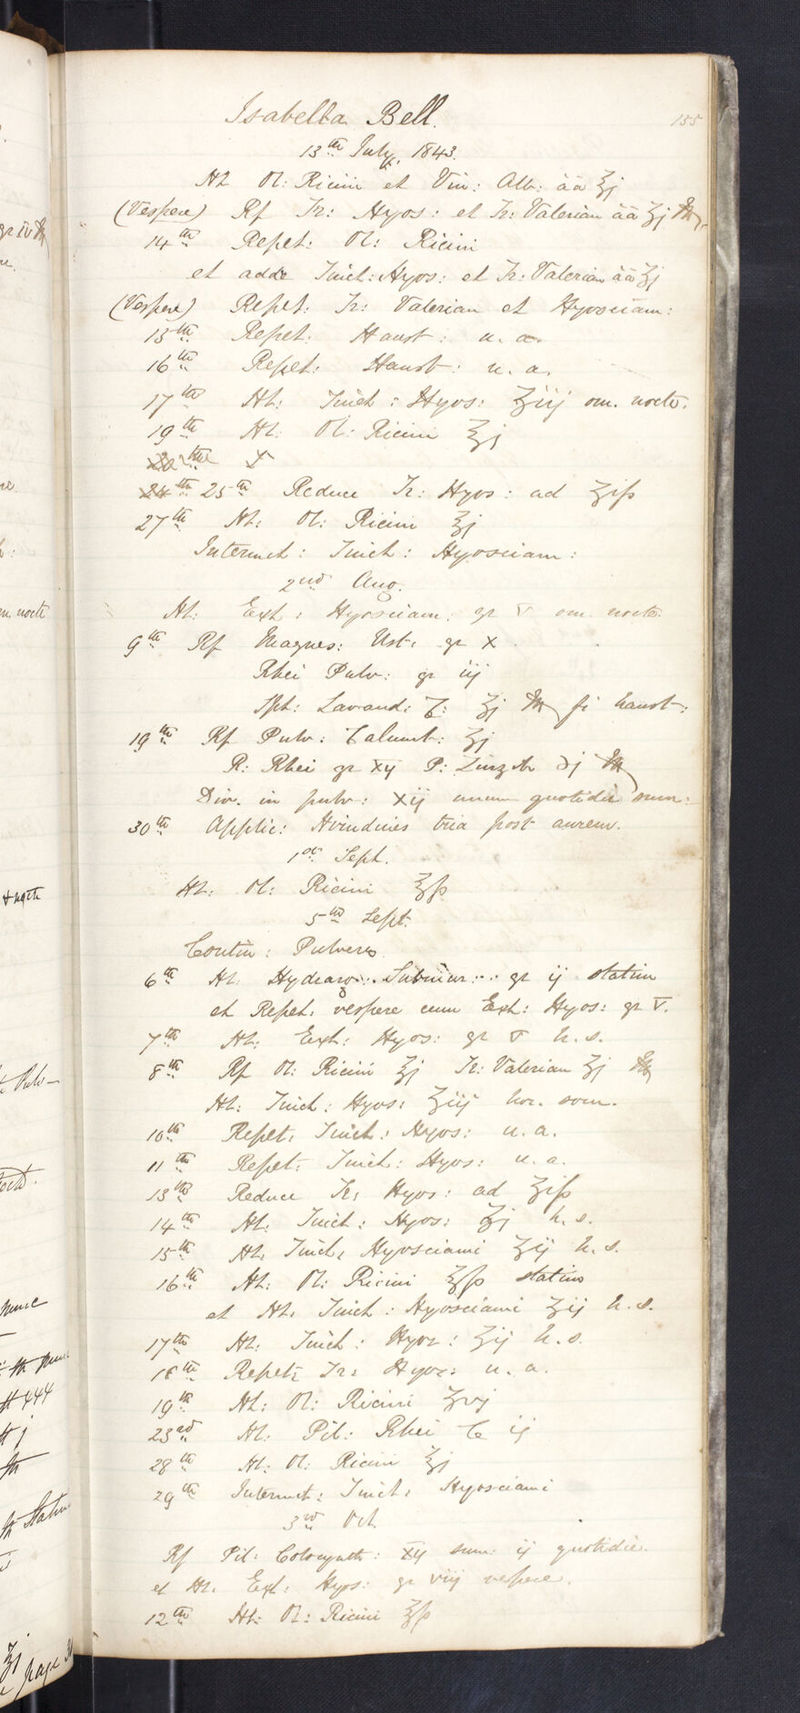 155
Isabella Bell.
13th July, 1843.
Ht Ol: Ricini et Vin: Alb: āā ℥j
(Vespere) Rf Tr: Hyos: et Tr: Valerian āā ʒj
14th Repet: Ol: Ricini
et adde Tinct: Hyos: et Tr: Valerian āā ʒj
(Vespere) Repet. Tr: Valerian et Hyosciam:
15th Repet. Haust: u. a.
16th Repet: Haust: u. a.
17th Ht: Tinct: Hyos: ʒiij om. nocte.
19th Ht: Ol: Ricini ℥j
25th Reduce Tr: Hyos: ad ʒifs
27th Ht: Ol: Ricini ℥j
Intermit: Tinct: Hyosciam:
2nd Aug.
Ht. Ext: Hyosciam. gr v om. nocte.
9th Rf Magnes: Ust: gr X
Rhei Pulv: gr iij
Spt: Lavand: C: ʒj fi haust:
19th Rf Pulv: Calumb: ʒj
R: Rhei gr xij P: Zinzib ℈j
Div. in pulv: xij unum quotidie sum:
30th Applic: Hirudines tria post aurem.
1st Sept.
Ht: Ol: Ricini ℥fs
5th Sept.
Contin: Pulveres
6th Ht. Hydrarg: Submur: gr ij statim
et Repet. vespere cum Ext: Hyos: gr V.
7th Ht: Ext: Hyos: gr v h. s.
8th Rf Ol: Ricini ℥j Tr: Valerian ʒj
Ht: Tinct: Hyos: ʒiij hor. som.
10th Repet. Tinct: Hyos: u. a.
11th Repet. Tinct: Hyos: u. a.
13th Reduce Tr: Hyos: ad ʒifs
14th Ht: Tinct: Hyos: ʒj h. s.
15th Ht: Tinct: Hyosciami ʒij h. s.
16th Ht: Ol: Ricini ℥fs statim
et Ht. Tinct: Hyosciami ʒij h. s.
17th Ht: Tinct: Hyos: ʒij h. s.
18th Repet: Tr: Hyos: u. a.
19th Ht: Ol: Ricini ʒvj
23rd Ht. Pil: Rhei C ij
28th Ht: Ol: Ricini ℥j
29th Intermit: Tinct: Hyosciami
3rd Oct
Rf Pil: Colocynth: xij sum: ij quotidie.
et Ht. Ext: Hyos: gr viij vespere.
12th Ht: Ol: Ricini ℥fs